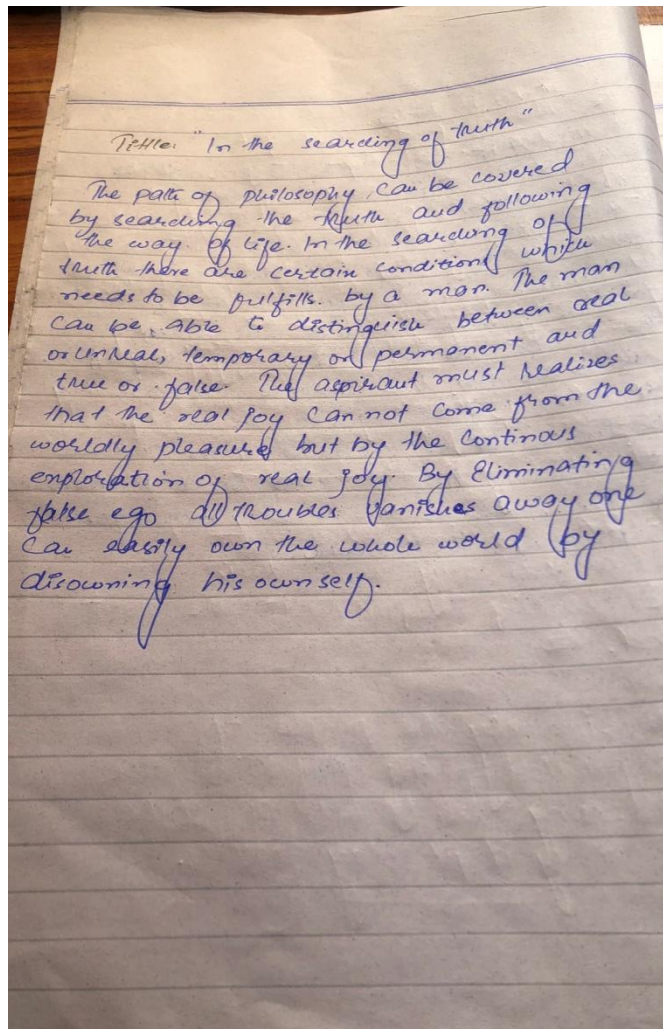 Title: "In the searching of truth"
The path of philosophy can be covered
by searching the truth and following
the way of life. In the searching of
truth there are certain conditions which
needs to be fulfills. by a man. The man
can be able to distinguish between real
or unreal, temporary or permanent and
true or false. The aspirant must realizes
that the real joy can not come from the
worldly pleasure but by the continous
exploration of real joy. By Eliminating
false ego all troubles vanishes away one
can easily own the whole world by
disowning his own self.